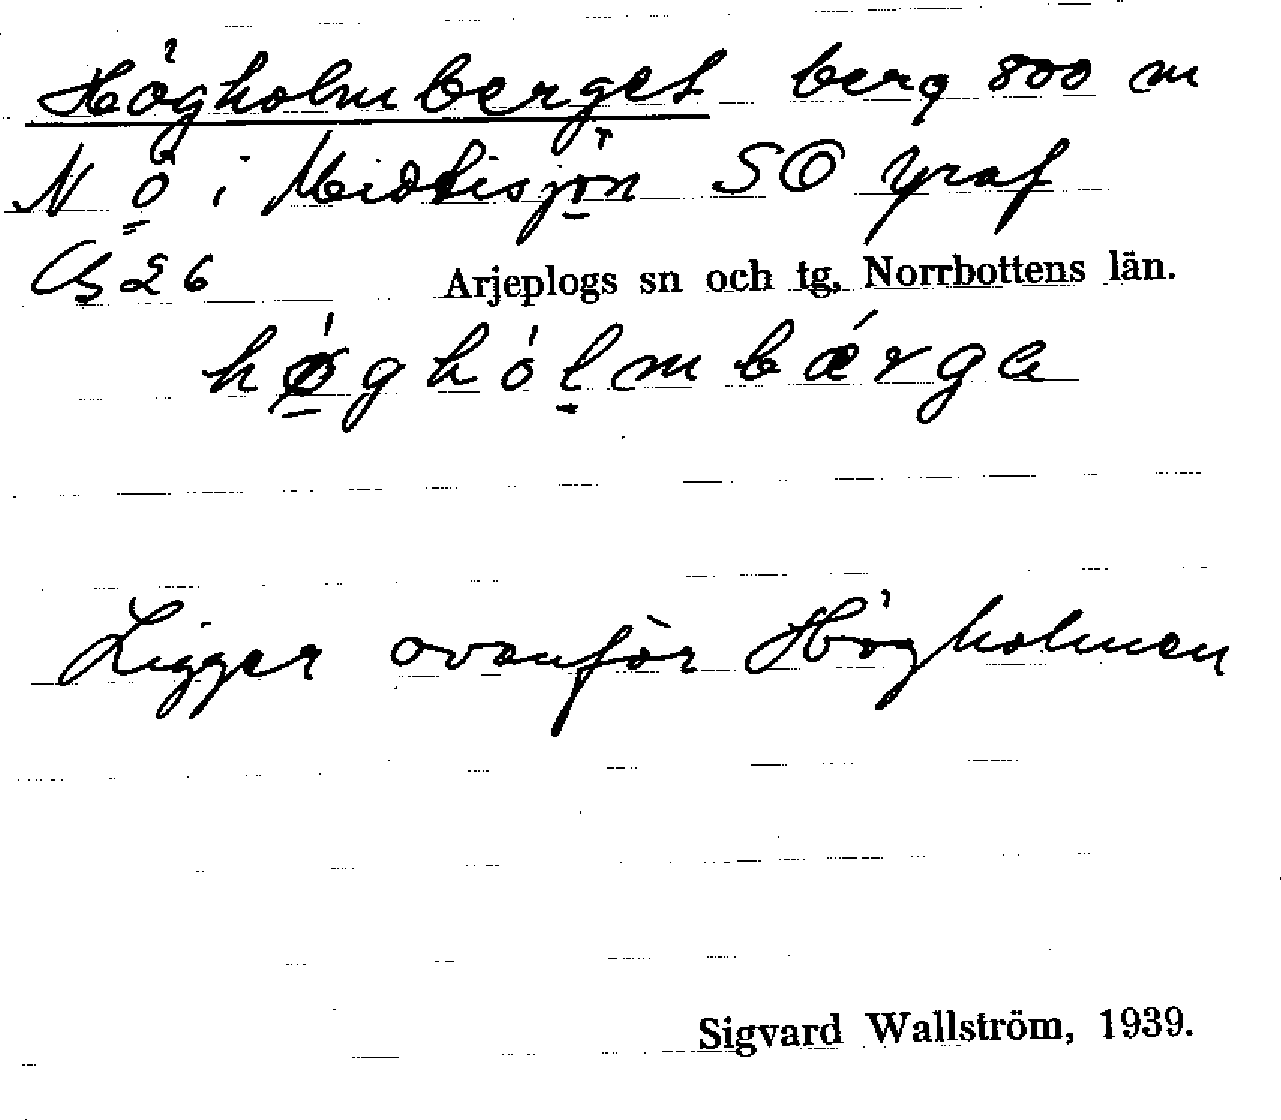 Högholmberget berg 800 m
N ö i Miettisjön SO Yraf
26 Arjeplogs sn och tg, Norrbottens län.
høghólmbǽrga
Ligger ovanför Högholmen
Sigvard Wallström, 1939.